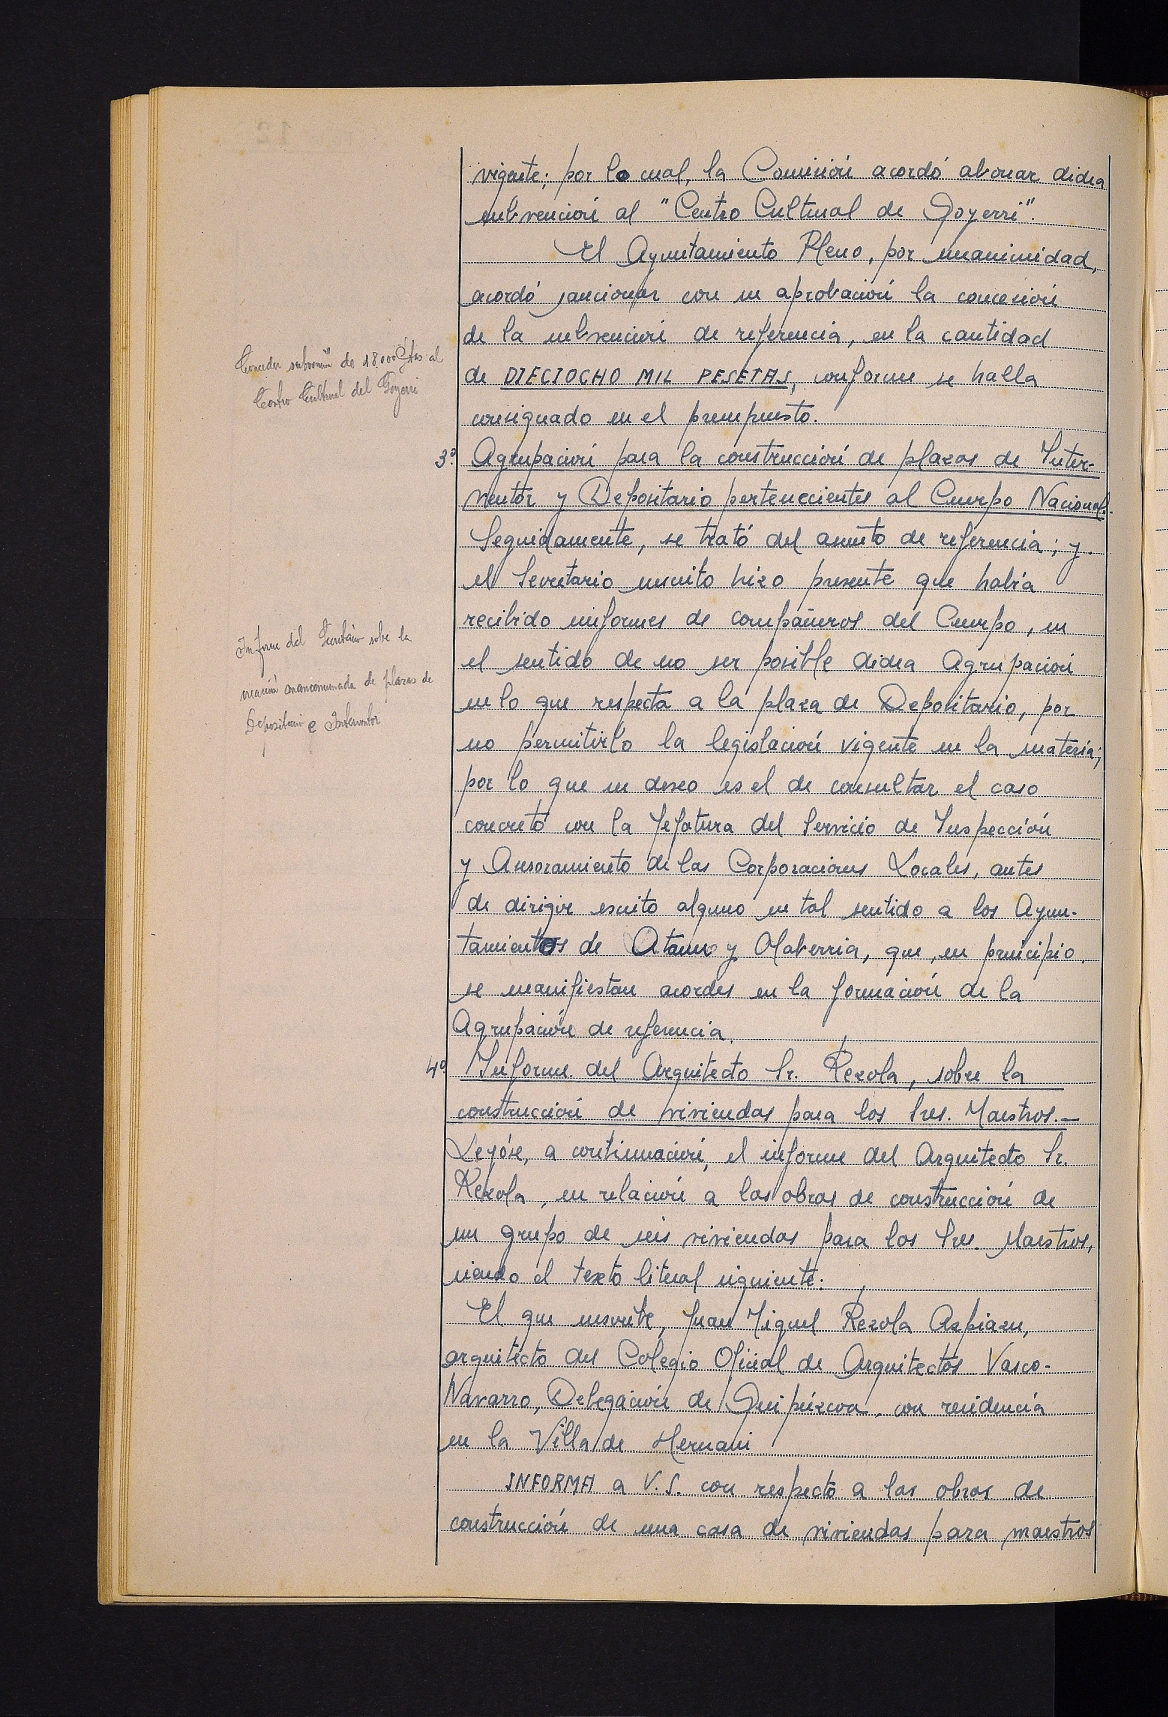 vigente; por lo cual, la Comisión acordó abonar dicha
subvención al "Centro Cultural de Goyerri".
El Ayuntamiento Pleno, por unanimidad,
acordó sancionar con su aprobación la concesión
de la subvención de referencia, en la cantidad
de DIECIOCHO MIL PESETAS, conforme se halla
consignado en el presupuesto.
Conceder subvención de 18.000 Ptas al
Centro Cultural del Goyerri
3º Agrupación para la construcción de plazas de Inter-
ventor y Depositario pertenecientes al Cuerpo Nacional.
Seguidamente, se trató del asunto de referencia; y
el Secretario suscrito hizo presente que había
recibido informes de compañeros del Cuerpo, en
el sentido de no ser posible dicha Agrupación
en lo que respecta a la plaza de Depositario, por
no permitirlo la legislación vigente en la materia;
por lo que su deseo es el de consultar el caso
concreto con la Jefatura del Servicio de Inspección
y Asesoramiento de las Corporaciones Locales, antes
de dirigir escrito alguno en tal sentido a los Ayun-
tamientos de Ataun y Olaberria, que, en principio,
se manifiestan acordes en la formación de la
Agrupación de referencia.
Informe del Secretario sobre la
creación mancomunada de plazas de
Depositario e Interventor
4º Informe del Arquitecto Sr. Rezola, sobre la
construcción de viviendas para los Sres. Maestros.—
Leyóse, a continuación, el informe del Arquitecto Sr.
Rezola, en relación a las obras de construcción de
un grupo de seis viviendas para los Sres. Maestros,
siendo el texto literal siguiente:
El que suscribe, Juan Miguel Rezola Azpiazu,
arquitecto del Colegio Oficial de Arquitectos Vasco-
Navarro, Delegación de Guipúzcoa, con residencia
en la Villa de Hernani
INFORMA a V.S. con respecto a las obras de
construcción de una casa de viviendas para maestros